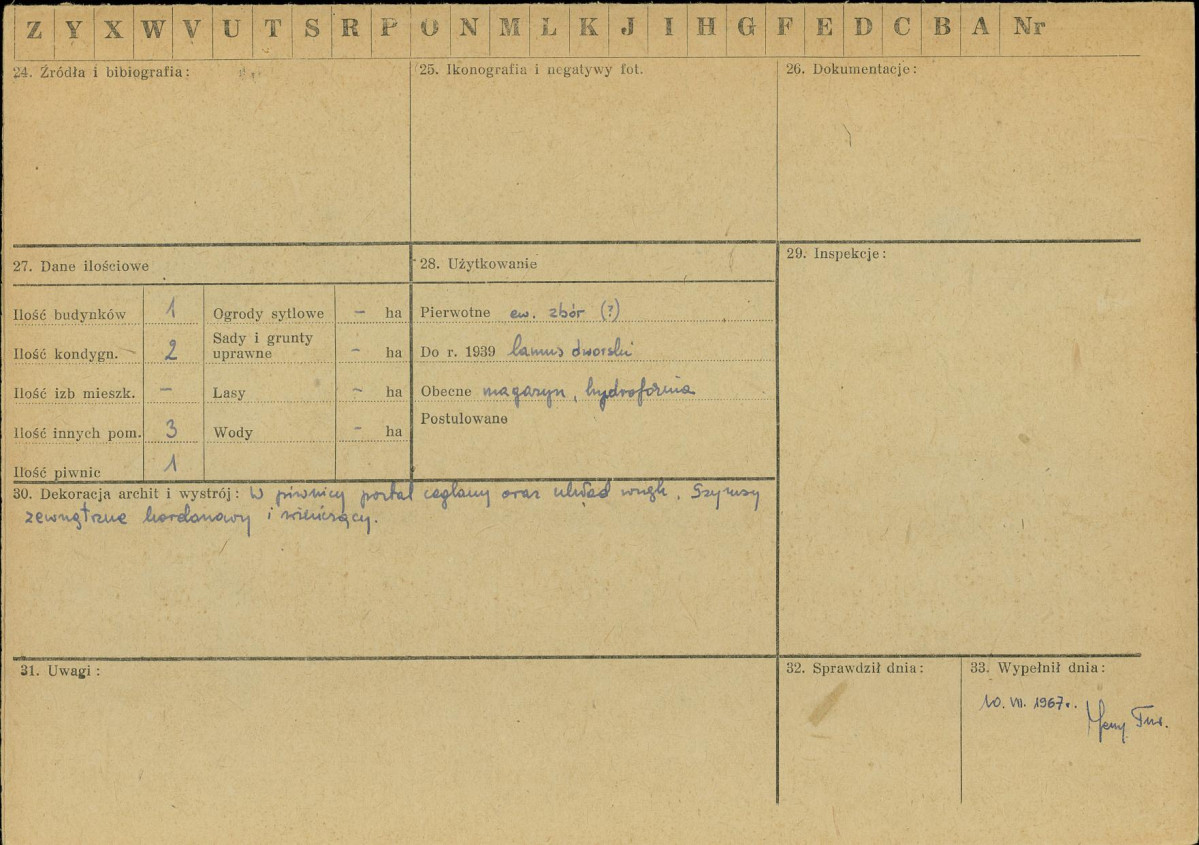 Z Y X W V U T S R P O N M L K J I H G F E D C B A Nr
24. Źródła i bibiografia:
25. Ikonografia i negatywy fot.
26. Dokumentacje:
27. Dane ilościowe
Ilość budynków 1 Ogrody sytlowe – ha
Ilość kondygn. 2 Sady i grunty
uprawne – ha
Ilość izb mieszk. – Lasy – ha
Ilość innych pom. 3 Wody – ha
Ilość piwnic 1
28. Użytkowanie
Pierwotne ew. zbór (?)
Do r. 1939 lamus dworski
Obecne magazyn, hydrofornia
Postulowane
29. Inspekcje:
30. Dekoracja archit i wystrój: W piwnicy portal ceglany oraz układ wnęk. Gzymsy
zewnętrzne kordonowy i wieńczący.
31. Uwagi:
32. Sprawdził dnia:
33. Wypełnił dnia:
10. VII. 1967r.